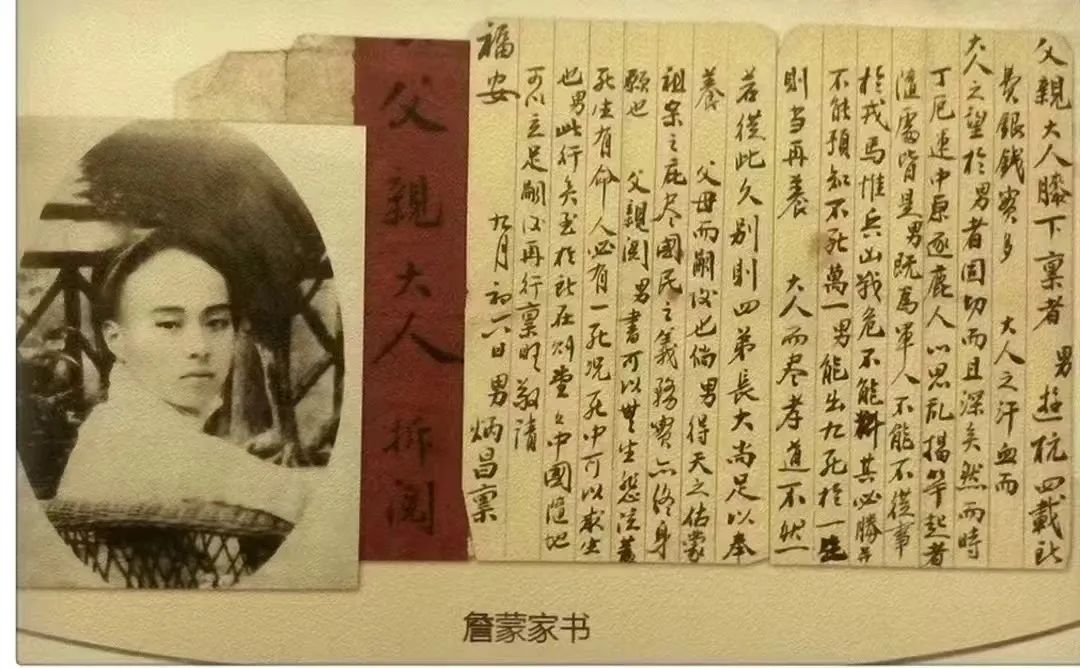 父親大人膝下禀者 男遊杭四載所
費銀錢實多 大人之汗血而
大人之望於男者固切而且深矣然而時
丁厄運中原逐鹿人心思乱揭竿起者
隨處皆是男既為軍人不能不從事
於戎馬惟兵凶戰危不能料其必勝亦
不能預知不死萬一男能出九死於一生
則当再養 大人而尽孝道不然一
若從此久别則四弟長大尚足以奉
養 父母而嗣後也倘男得天之佑蒙
祖宗之庇尽國民之義務實亦終身
願也 父親閱男書可以無生愁泣蓋
死生有命人必有一死况死中可以求生
也男此行矣至於所在則堂々中國隨地
可以立足嗣後再行禀明敬請
福安 九月初六日男炳昌禀
父親大人拆閱
詹蒙家书